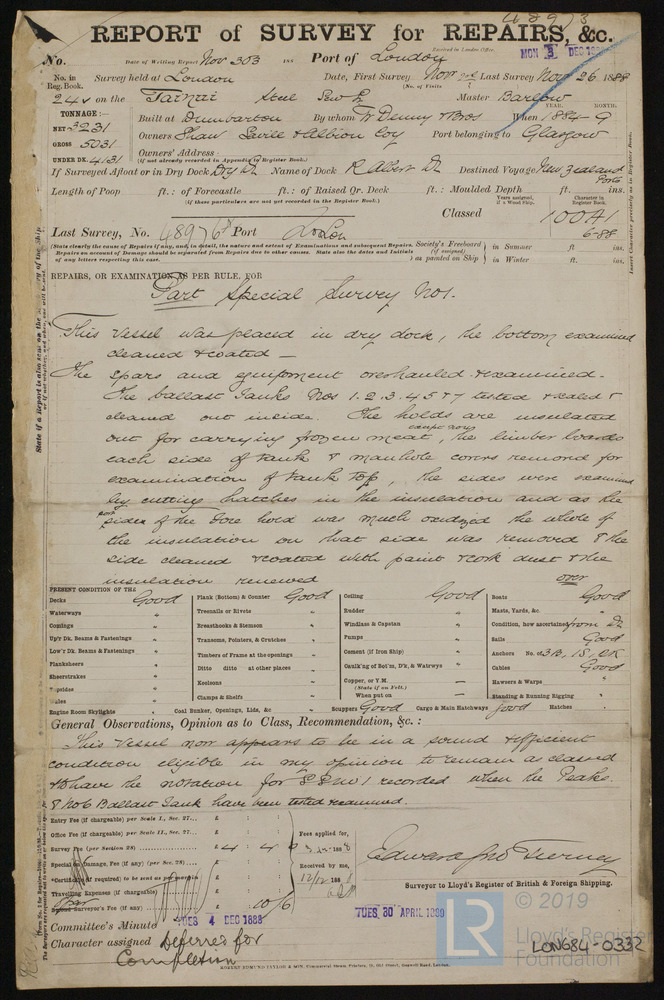 48973
REPORT of SURVEY for REPAIRS, &c.
Received in London Office.
MON 3 DEC 1888
No. Date of Writing Report Nov 30 188 Port of London
No. in Reg. Book. Survey held at London Date, First Survey Nov Last Survey Nov 26 1888
(No. of Visits
24 on the Tainui Steel Master Barlow
TONNAGE:— YEAR. MONTH.
NET 3231 Built at Dumbarton By whom W Denny & Bros When 1884-9
GROSS 5031 Owners Shaw Savill & Albion Coy Port belonging to Glasgow
UNDER DK. 4131 Owners' Address
(if not already recorded in Appendix to Register Book.)
If Surveyed Afloat or in Dry Dock Dry Dk Name of Dock R Albert Dk Destined Voyage New Zealand Ports
Length of Poop ft.: of Forecastle ft.: of Raised Qr. Deck ft.: Moulded Depth ft. ins.
(If these particulars are not yet recorded in the Register Book.)
Years assigned, if a Wood Ship. Character in Register Book.
Classed 100A1
6-88
Last Survey, No. 48976 Port Lon
(State clearly the cause of Repairs if any, and, in detail, the nature and extent of Examinations and subsequent Repairs.
Repairs on account of Damage should be separated from Repairs due to other causes. State also the dates and Initials
of any letters respecting this case.
Society's Freeboard (if assigned) as painted on Ship
in Summer ft. ins.
in Winter ft. ins.
REPAIRS, OR EXAMINATION AS PER RULE, FOR
Part Special Survey No1.
This Vessel was placed in dry dock, the bottom examined
cleaned & coated —
The spars and equipment overhauled & examined.
The ballast tanks Nos 1.2.3.4.5 & 7 tested & scaled &
cleaned out inside. The holds are insulated
out for carrying frozen meat, the limber boards
each side of tank & manhole covers removed for
examination of tank top, the sides were examined
by cutting hatches in the insulation and as the
port sides of the Fore hold was much oxidized the whole of
the insulation on that side was removed & the
side cleaned & coated with paint & cork dust & the
insulation renewed
over
PRESENT CONDITION OF THE
Decks Good
Waterways "
Comings "
Upr Dk. Beams & Fastenings "
Low'r Dk. Beams & Fastenings "
Planksheers "
Sheerstrakes "
Topsides "
Wales "
Engine Room Skylights "
Plank (Bottom) & Counter Good
Treenails or Rivets "
Breasthooks & Stemson "
Transoms, Pointers, & Crutches "
Timbers of Frame at the openings "
Ditto ditto at other places "
Keelsons "
Clamps & Shelfs "
Coal Bunker, Openings, Lids, &c "
Ceiling Good
Rudder "
Windlass & Capstan "
Pumps "
Cement (if Iron Ship) "
Caulk'ng of Bot'm, D'k, & Watrwys "
Copper, or Y.M. —
(State if on Felt.)
When put on —
Scuppers Good Cargo & Main Hatchways Good Hatches "
Boats Good
Masts, Yards, &c. "
Condition, how ascertained from Dk
Sails Good
Anchors No. of 3B, 1S, 2K
Cables Good
Hawsers & Warps "
Standing & Running Rigging "
General Observations, Opinion as to Class, Recommendation, &c.:
This Vessel now appears to be in a sound & efficient
condition eligible in my opinion to remain as classed
& to have the notation for SS No 1 recorded when the Peaks
& No 6 Ballast Tank have been tested & examined.
Entry Fee (if chargeable) per Scale I., Sec. 27... £ : :
Office Fee (if chargeable) per Scale II., Sec. 27... £ : :
Survey Fee (per Section 28) £ 4 : 4 :
Special or Damage, Fee (if any) (per Sec. 28) £ : :
*Certificate (if required) to be sent as per margin
Travelling Expenses (if chargeable) £ : :
Surveyor's Fee (if any) £ : 10/6
Fees applied for,
188
Received by me,
12/12 188
Edward Jno Tierney
Surveyor to Lloyd's Register of British & Foreign Shipping.
Committee's Minute TUES 4 DEC 1888 TUES. 30 APRIL 1889
Character assigned Deferred for
Completion
ROBERT EDMUND TAYLOR & SON, Commercial Steam Printers, 19, Old Street, Goswell Road, London.
LR © 2019
Lloyd's Register
Foundation
LON684-0332